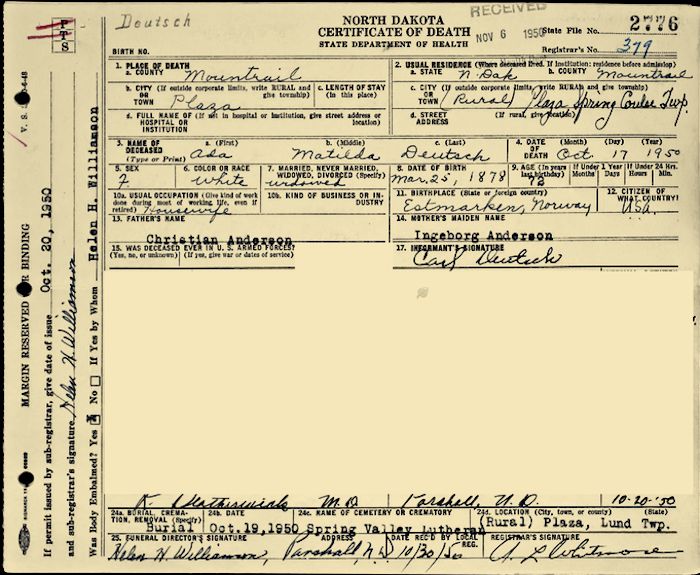 Deutsch
NORTH DAKOTA
CERTIFICATE OF DEATH
STATE DEPARTMENT OF HEALTH
RECEIVED
NOV 6 1950
State File No. 2776
Registrar's No. 379
BIRTH NO.
1. PLACE OF DEATH
a. COUNTY Mountrail
2. USUAL RESIDENCE (Where deceased lived. If institution: residence before admission)
a. STATE N. Dak b. COUNTY Mountrail
b. CITY (If outside corporate limits, write RURAL and give township) OR TOWN Plaza
c. LENGTH OF STAY (in this place)
c. CITY (If outside corporate limits, write RURAL and give township) OR TOWN (Rural) Plaza Spring Coulee Twp.
d. FULL NAME OF (If not in hospital or institution, give street address or location) HOSPITAL OR INSTITUTION
d. STREET ADDRESS (If rural, give location)
3. NAME OF DECEASED (Type or Print)
a. (First) Ada
b. (Middle) Matilda
c. (Last) Deutsch
4. DATE OF DEATH (Month) (Day) (Year) Oct. 17 1950
5. SEX F
6. COLOR OR RACE White
7. MARRIED, NEVER MARRIED, WIDOWED, DIVORCED (Specify) widowed
8. DATE OF BIRTH Mar. 25, 1878
9. AGE (In years last birthday) 72
If Under 1 Year Months Days
If Under 24 Hrs. Hours Min.
10a. USUAL OCCUPATION (Give kind of work done during most of working life, even if retired) Housewife
10b. KIND OF BUSINESS OR INDUSTRY
11. BIRTHPLACE (State or foreign country) Estmarken, Norway
12. CITIZEN OF WHAT COUNTRY? USA.
13. FATHER'S NAME
Christian Anderson
14. MOTHER'S MAIDEN NAME
Ingeborg Anderson
15. WAS DECEASED EVER IN U. S. ARMED FORCES?
(Yes, no, or unknown) (If yes, give war or dates of service)
17. INFORMANT'S SIGNATURE
Carl Deutsch
M.D. Parshall, N. D. 10-20-'50
24a. BURIAL, CREMATION, REMOVAL (Specify) Burial
24b. DATE Oct.19,1950
24c. NAME OF CEMETERY OR CREMATORY Spring Valley Lutheran
24d. LOCATION (City, town, or county) (State) (Rural) Plaza, Lund Twp.
25. FUNERAL DIRECTOR'S SIGNATURE ADDRESS
Helen H. Williamson, Parshall, N D
DATE REC'D BY LOCAL REG. 10/30/50
REGISTRAR'S SIGNATURE
A L Whitmore
V. S.
MARGIN RESERVED FOR BINDING
If permit issued by sub-registrar, give date of issue Oct. 20, 1950
and sub-registrar's signature Helen H. Williamson
Was Body Embalmed? Yes No If Yes by Whom Helen H. Williamson